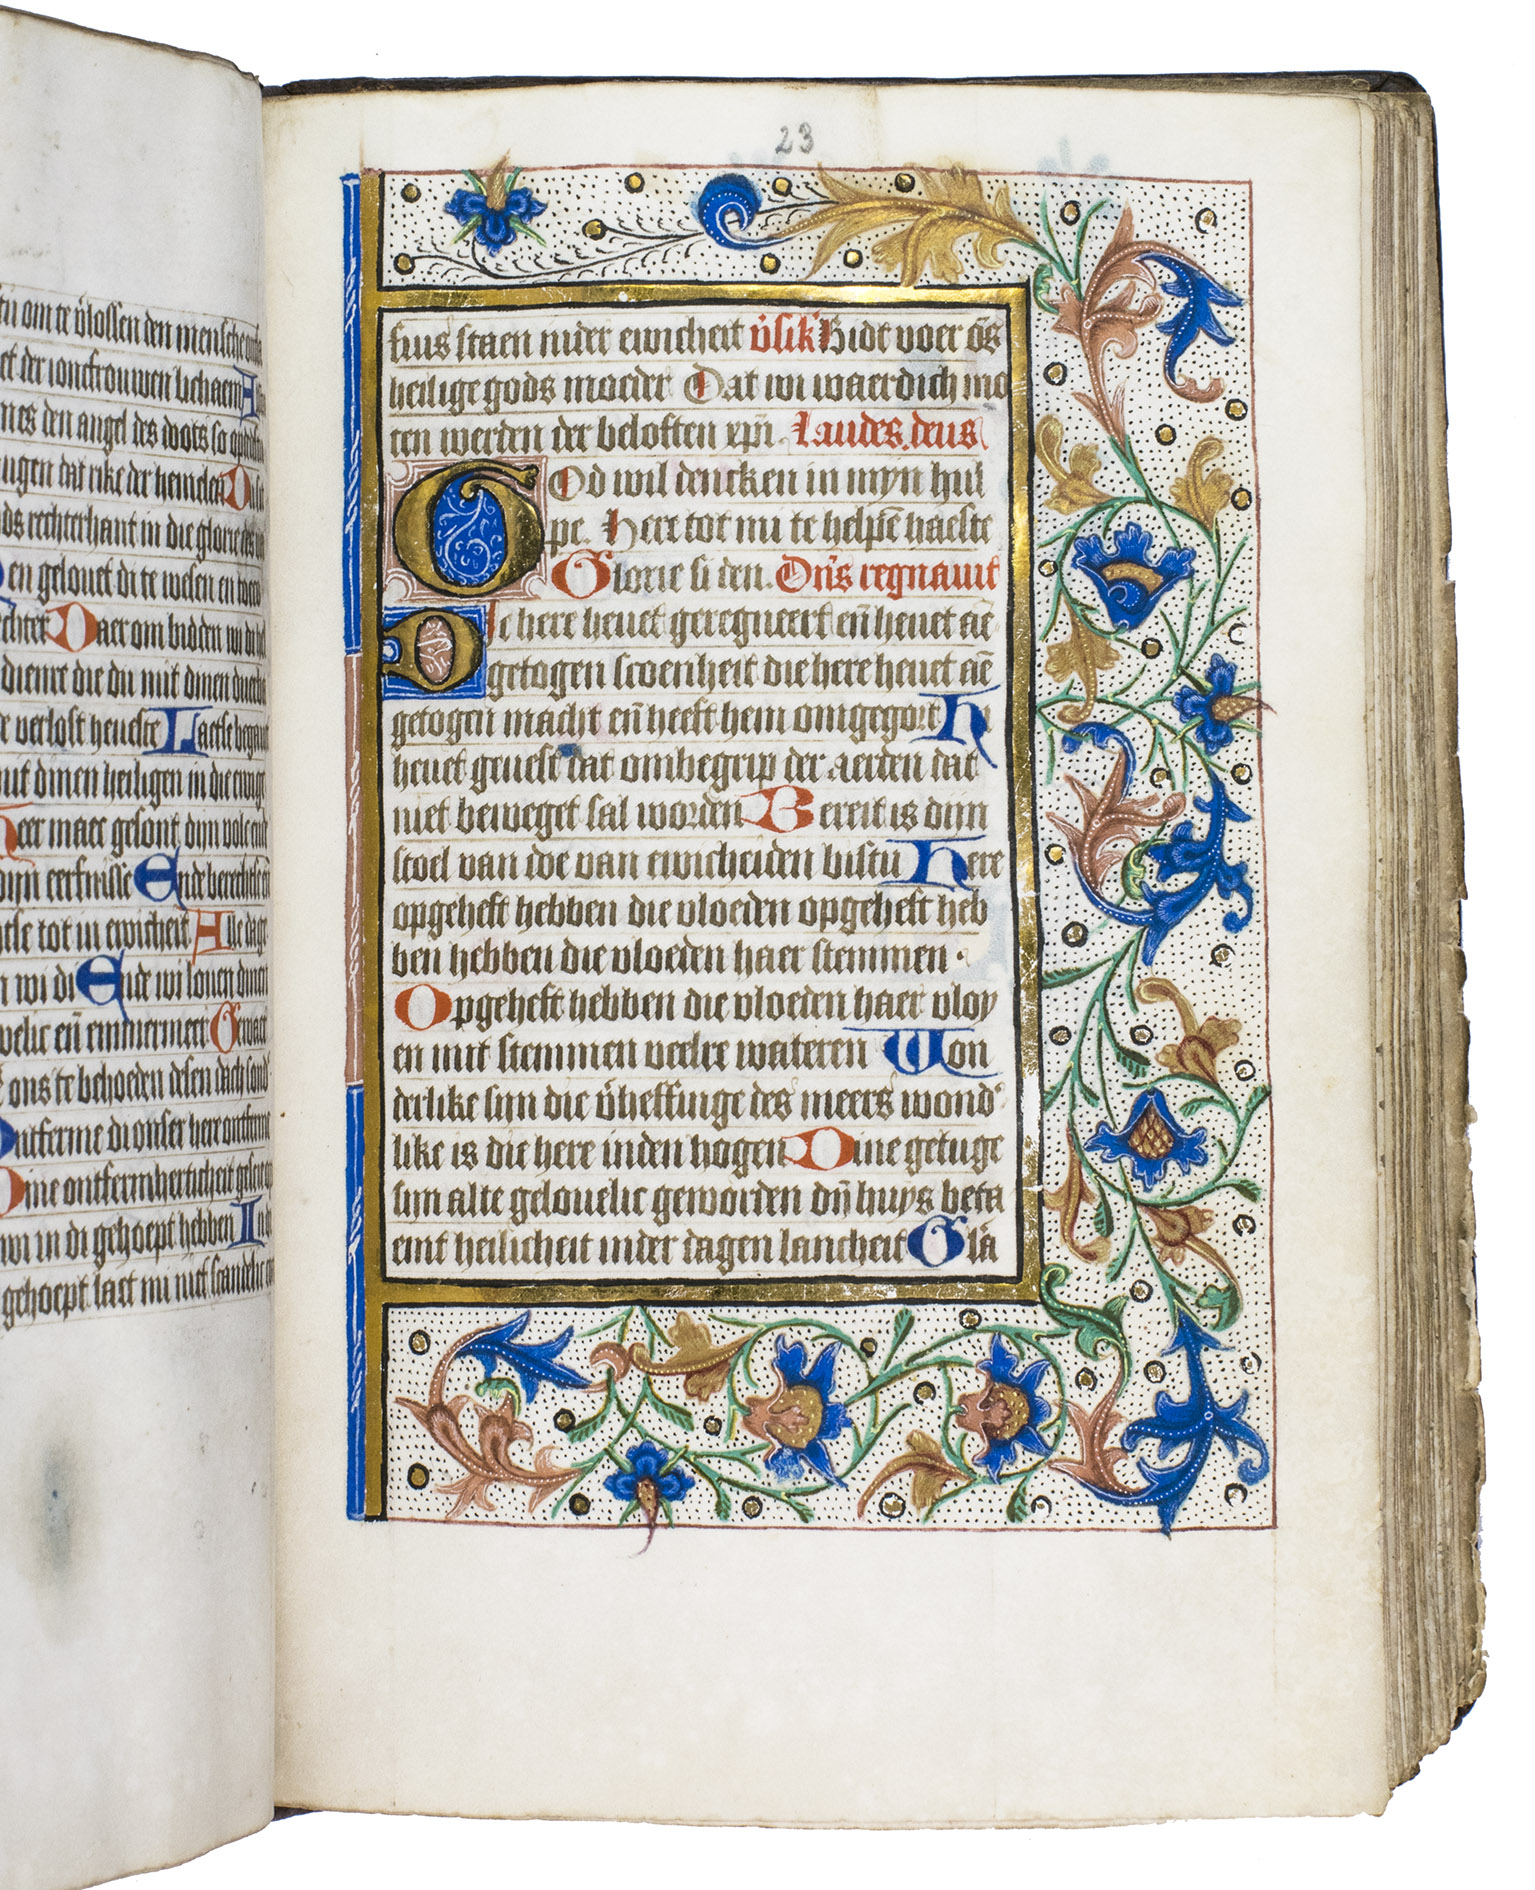 tu om te v̄lossen den mensche
et der ioncfrouwen lichaem A
nes den angel des doots so
ingen dat rike der hemelen Du
ds rechterhant in die glorie des
en gelouet di te wesen en toeco
chter Daer om bidden wi di
dienre die du mit dinen
verlost heueste Laetse begauet
mit dinen heiligen in die ewige
Heer maec gesont dijn volc ende
dijn eerfnisse Ende berechtse en̄
tse tot in ewicheit Alle dage
wi di Ende wi louen dinen
welic en̄ emmermeer Gewaer
ons te behoeden desen dach sond
Ontferme di onser here ontferme
Dine ontfermherticheit gescie
wi in di gehoept hebben In di
gehoept laet mi niet scandelic
23
sius staen inder ewicheit v̄sik Bidt voer ōs
heilige gods moeder Dat wi waerdich mo
ten werden der beloften xpi̅. Laudes. deus
God wil dencken in myn hul
pe. Here tot mi te helpē haeste
Glorie si den. Dn̄s regnauit
Die here heuet geregneert en̄ heuet aē
getogen scoenheit die here heuet aē
getogen macht en̄ heeft hem omgegort Hi
heuet geuest dat ombegrip der aerden dat
niet beweget sal worden Bereit is dijn
stoel van doe van ewicheiden bistu Here
opgeheft hebben die vloeden opgeheft heb
ben hebben die vloeden haer stemmen.
Opgeheft hebben die vloeden haer vloy
en mit stemmen veelre wateren Won
derlike sijn die v̄heffinge des meers wond'
like is die here inden hogen Dine getuge
sijn alte gelouelic geworden dn̄ huys beta
emt heilicheit inder dagen lancheit Glā